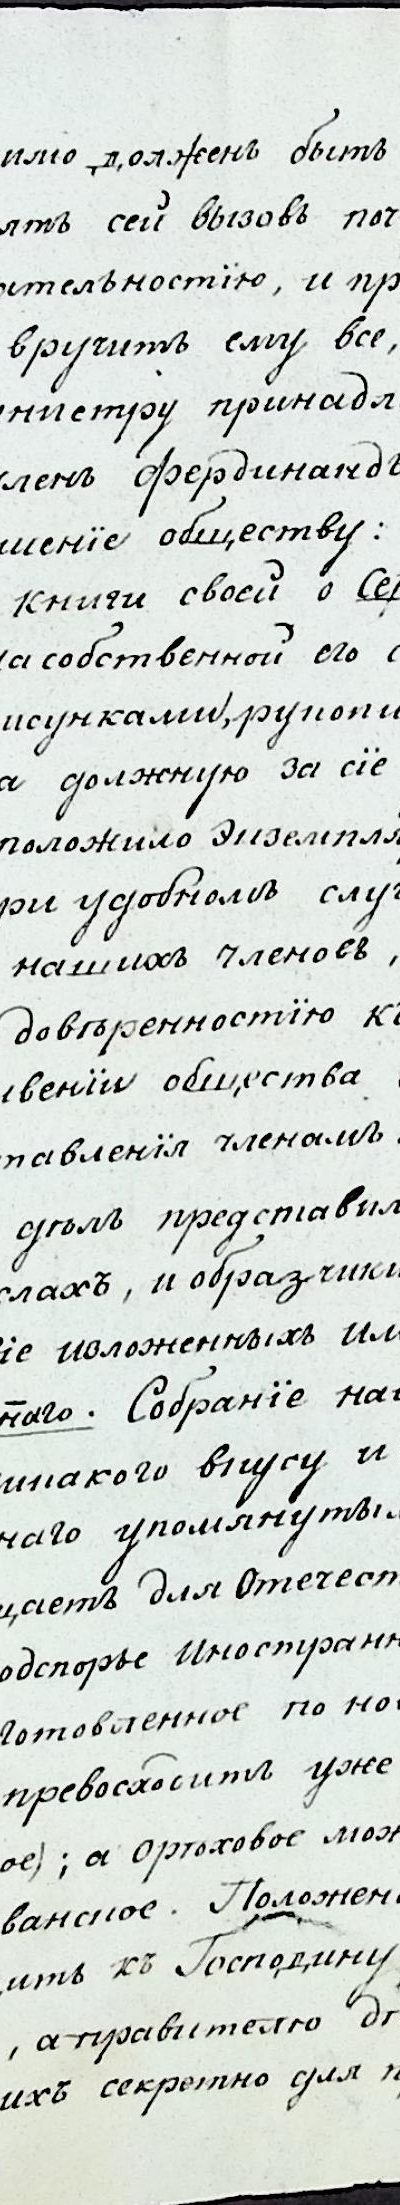 имо долженъ быть
ять сей вызовъ поч
ательностїю, и пр
вручить ему все,
нистру принадл
членъ Фердинандъ
шенїе обществу:
книги своей о Се
на собственной его
исунками, рукопи
а должную за сїе
положило экземпля
ри удобномъ случ
нашихъ членовъ,
довѣренностїю къ
ивенїи общества
тавленїя членамъ
дѣлъ представил
слахъ, и образчики
їе изложенныхъ им
наго. Собранїе на
инакого вкусу и
наго упомянуты
щаетъ для Отечест
одспорье Иностран
готовленное по но
превосходитъ уже
ое); а Орѣховое мож
ванское. Положен
ить къ Господину
, а правителю дѣ
ихъ секретно для п